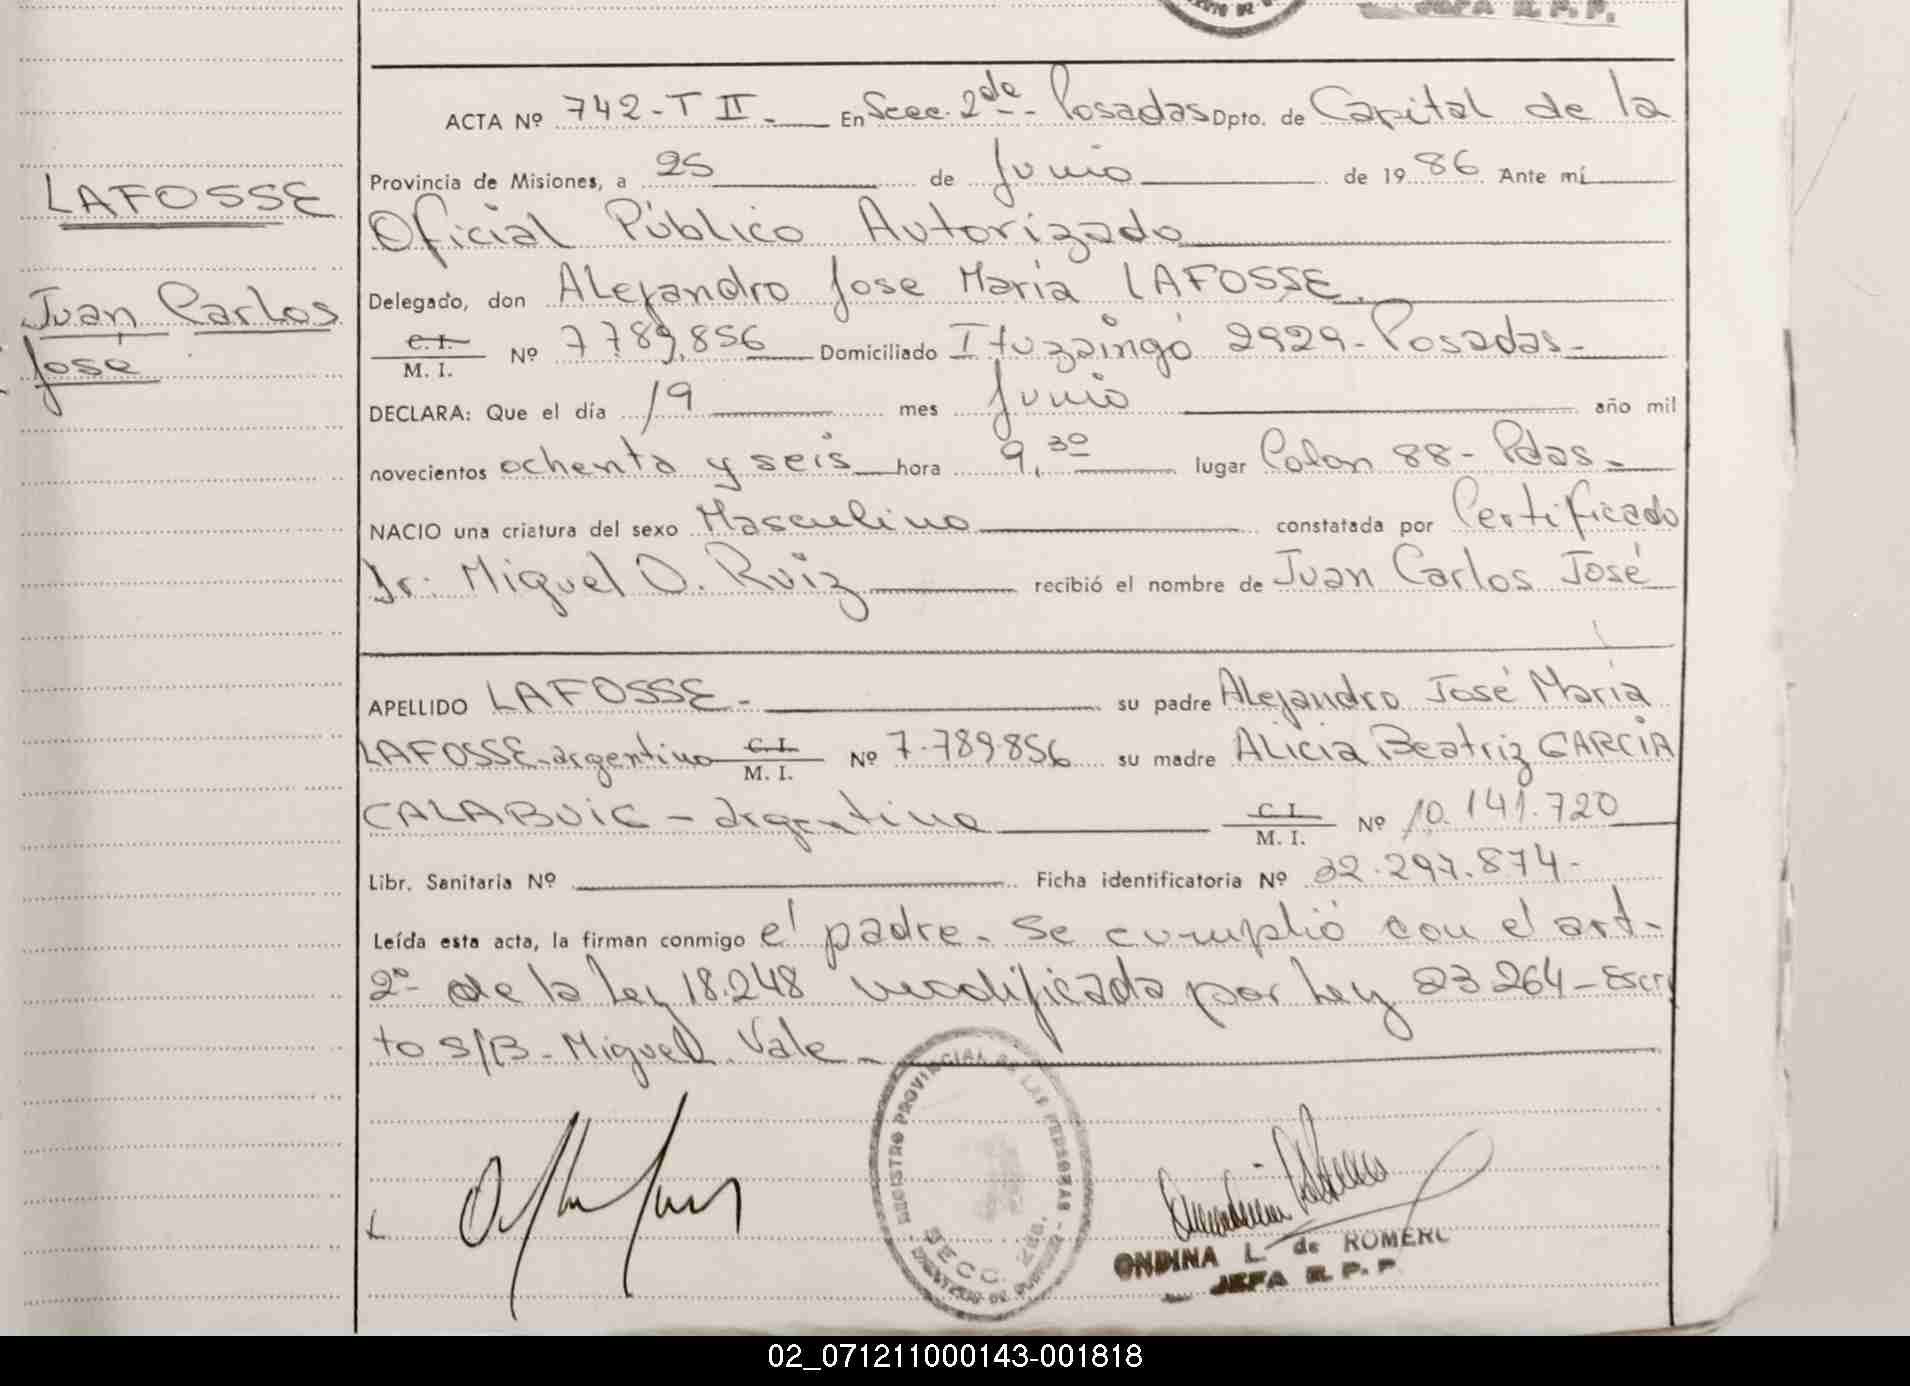 JEFA R. P. P.
ACTA Nº 742-T II.- En Secc. 2da- Posadas Dpto. de Capital de la
Provincia de Misiones, a 25 de Junio de 1986 Ante mí
LAFOSSE
Oficial Público Autorizado
Delegado, don Alejandro Jose María LAFOSSE.
Juan Carlos
José
C. I.
M. I. Nº 7.789.856 Domiciliado Ituzaingó 2929-Posadas-
DECLARA: Que el día 19 mes Junio año mil
novecientos ochenta y seis hora 9,30 lugar Colon 88- Pdas.
NACIO una criatura del sexo Masculino constatada por Certificado
Dr: Miguel O. Ruiz recibió el nombre de Juan Carlos José
APELLIDO LAFOSSE.- su padre Alejandro José María
LAFOSSE-argentino C. I. M. I. Nº 7.789.856 su madre Alicia Beatriz GARCIA
CALABUIG - argentina C. I. M. I. Nº 10.141.720
Libr. Sanitaria Nº Ficha identificatoria Nº 32.297.874-
Leída esta acta, la firman conmigo el padre. Se cumplió con el art-
2º de la ley 18.248 modificada por ley 23264-Escri
to S/B-Miguel Vale-
REGISTRO PROVINCIAL DE LAS PERSONAS
SECC. 2da.
ONDINA L. de ROMERO
JEFA R. P. P.
02_071211000143-001818